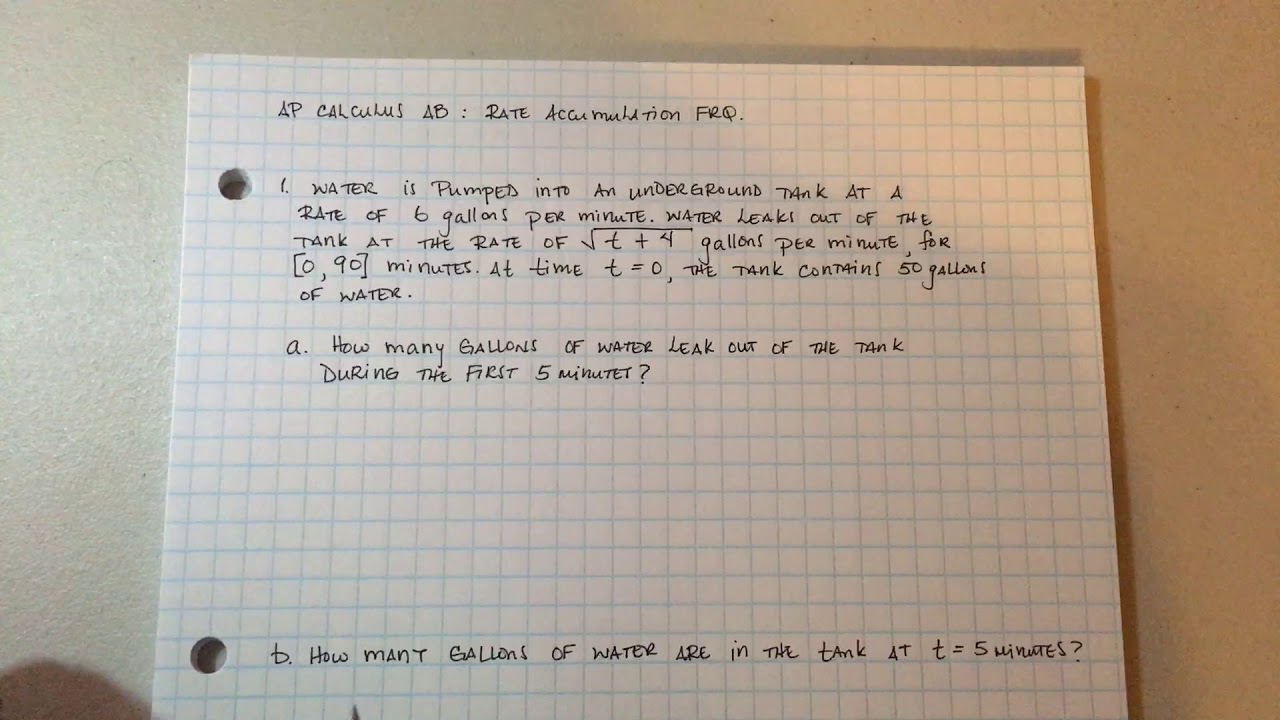 AP CALCULUS AB : RATE Accumulation FRQ.
1. WATER is PUMPED into AN UNDERGROUND TANK AT A
RATE OF 6 gallons PER MINUTE. WATER LEAKS OUT OF THE
TANK AT THE RATE OF √(t + 4) gallons PER MINUTE, for
[0, 90] MINUTES. At time t = 0, THE TANK CONTAINS 50 gallons
OF WATER.
a. How many GALLONS OF WATER LEAK OUT OF THE TANK
DURING THE FIRST 5 MINUTET?
b. HOW MANY GALLONS OF WATER ARE in THE tANK AT t = 5 MINUTES?